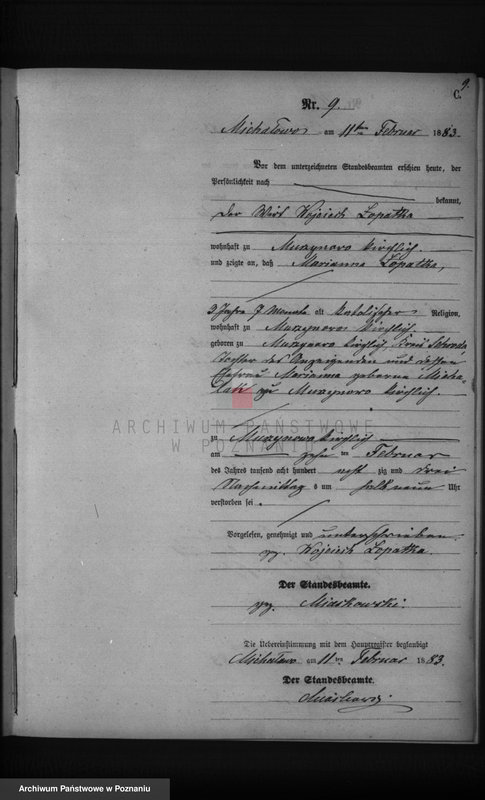 9.
C.
Nr. 9.
Michałowo am 11ten Februar 1883.
Vor dem unterzeichneten Standesbeamten erschien heute, der
Persönlichkeit nach
bekannt,
der Wirt Wojciech Lopatka
wohnhaft zu Murzynowo kirchlich.
und zeigte an, daß Marianna Lopatka,
3 Jahre 7 Monate alt katolischer Religion,
wohnhaft zu Murzynowo kirchlich
geboren zu Murzynowo kirchlich Kreis Schroda
Tochter des Anzeigenden und dessen
Ehefrau Marianna geborene Micha-
lak zu Murzynowo kirchlich.
ARCHIWUM PAŃSTWOWE
W POZNANIU
zu Murzynowo kirchlich
am zehn ten Februar
des Jahres tausend acht hundert acht zig und drei
Nachmittag s um halb neun Uhr
verstorben sei.
Vorgelesen, genehmigt und unterschrieben.
gez. Wojciech Lopatka.
Der Standesbeamte.
gez. Miaskowski.
Die Uebereinstimmung mit dem Hauptregister beglaubigt
Michałowo am 11ten Februar 1883.
Der Standesbeamte.
Miaskowski
Archiwum Państwowe w Poznaniu